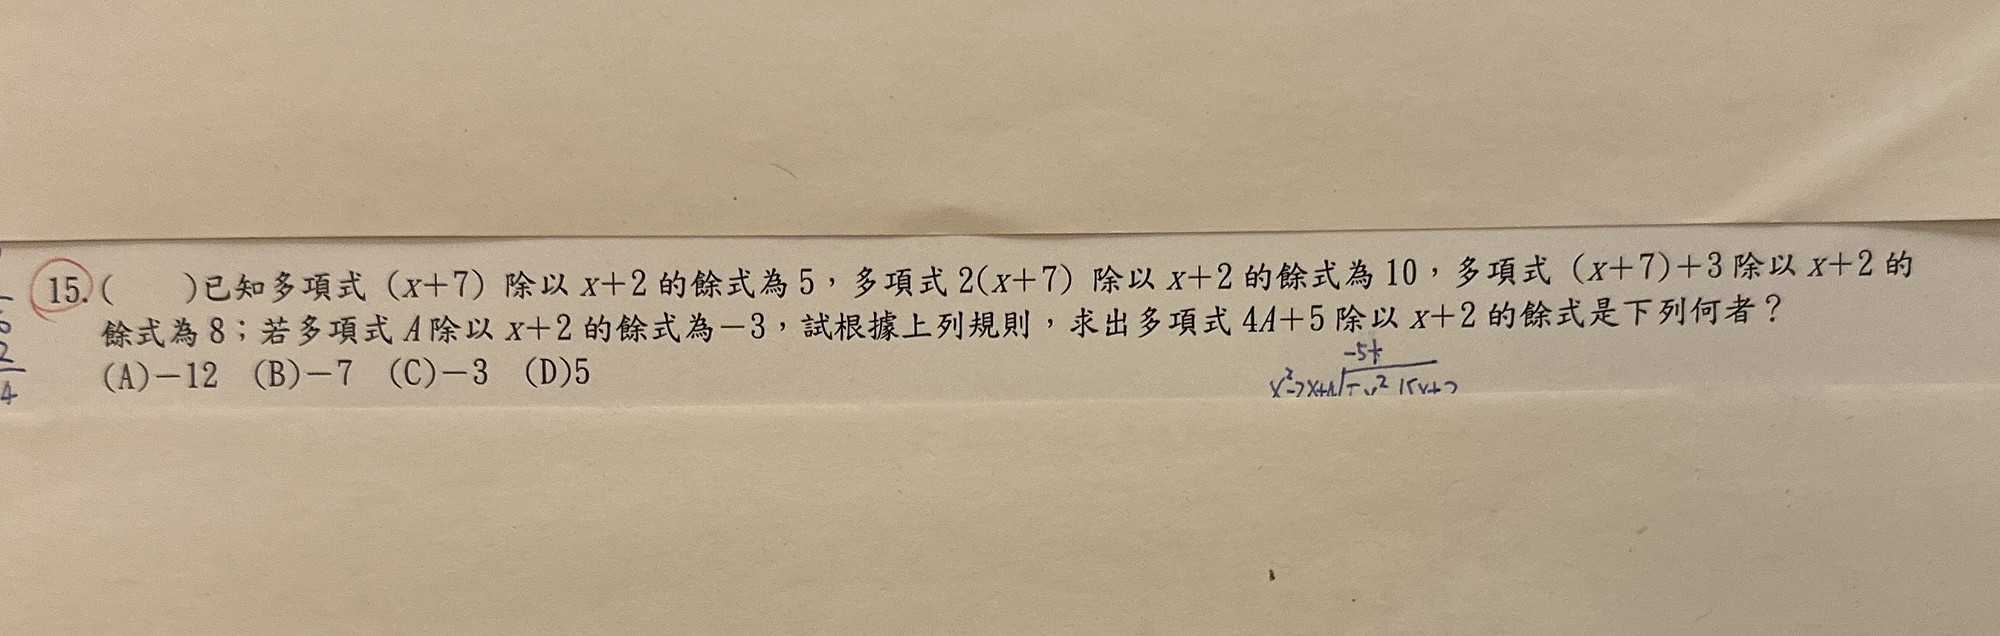 15.(　　)已知多項式（x+7）除以 x+2 的餘式為 5，多項式 2(x+7) 除以 x+2 的餘式為 10，多項式（x+7)+3 除以 x+2 的
餘式為 8；若多項式 A 除以 x+2 的餘式為－3，試根據上列規則，求出多項式 4A+5 除以 x+2 的餘式是下列何者？
(A)－12　(B)－7　(C)－3　(D)5
2
4